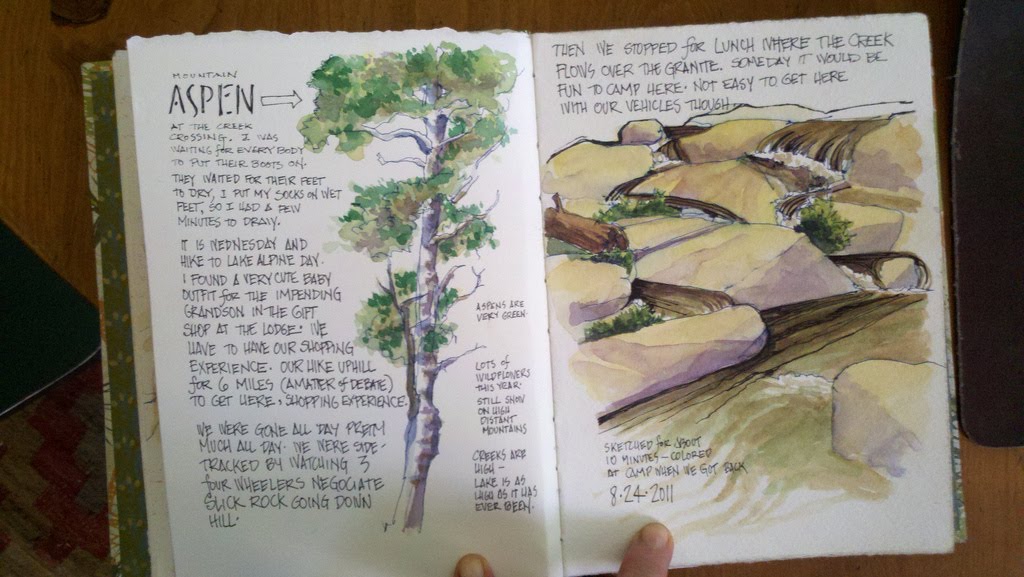 MOUNTAIN
ASPEN
AT THE CREEK
CROSSING. I WAS
WAITING FOR EVERYBODY
TO PUT THEIR BOOTS ON.
THEY WAITED FOR THEIR FEET
TO DRY, I PUT MY SOCKS ON WET
FEET, SO I HAD A FEW
MINUTES TO DRAW.
IT IS WEDNESDAY AND
HIKE TO LAKE ALPINE DAY.
I FOUND A VERY CUTE BABY
OUTFIT FOR THE IMPENDING
GRANDSON IN THE GIFT
SHOP AT THE LODGE. WE
HAVE TO HAVE OUR SHOPPING
EXPERIENCE. OUR HIKE UPHILL
FOR 6 MILES (A MATTER OF DEBATE)
TO GET HERE, SHOPPING EXPERIENCE.
WE WERE GONE ALL DAY PRETTY
MUCH ALL DAY. WE WERE SIDE-
TRACKED BY WATCHING 3
FOUR WHEELERS NEGOCIATE
SLICK ROCK GOING DOWN
HILL.
ASPENS ARE
VERY GREEN.
LOTS OF
WILDFLOWERS
THIS YEAR.
STILL SNOW
ON HIGH
DISTANT
MOUNTAINS
CREEKS ARE
HIGH –
LAKE IS AS
HIGH AS IT HAS
EVER BEEN.
THEN WE STOPPED FOR LUNCH WHERE THE CREEK
FLOWS OVER THE GRANITE. SOMEDAY IT WOULD BE
FUN TO CAMP HERE. NOT EASY TO GET HERE
WITH OUR VEHICLES THOUGH.
SKETCHED FOR ABOUT
10 MINUTES – COLORED
AT CAMP WHEN WE GOT BACK
8.24.2011